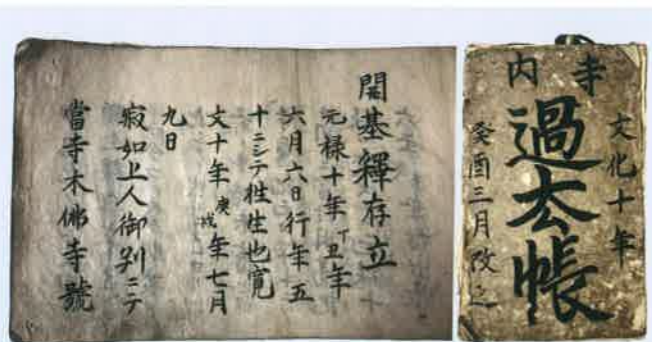 文化十年
寺内
過去帳
癸酉三月改之
開基釋存立
元禄十年丁丑年
六月六日行年五
十二シテ往生也寛
文十年庚戌年七月
九日
寂如上人御判ニテ
當寺木佛寺號